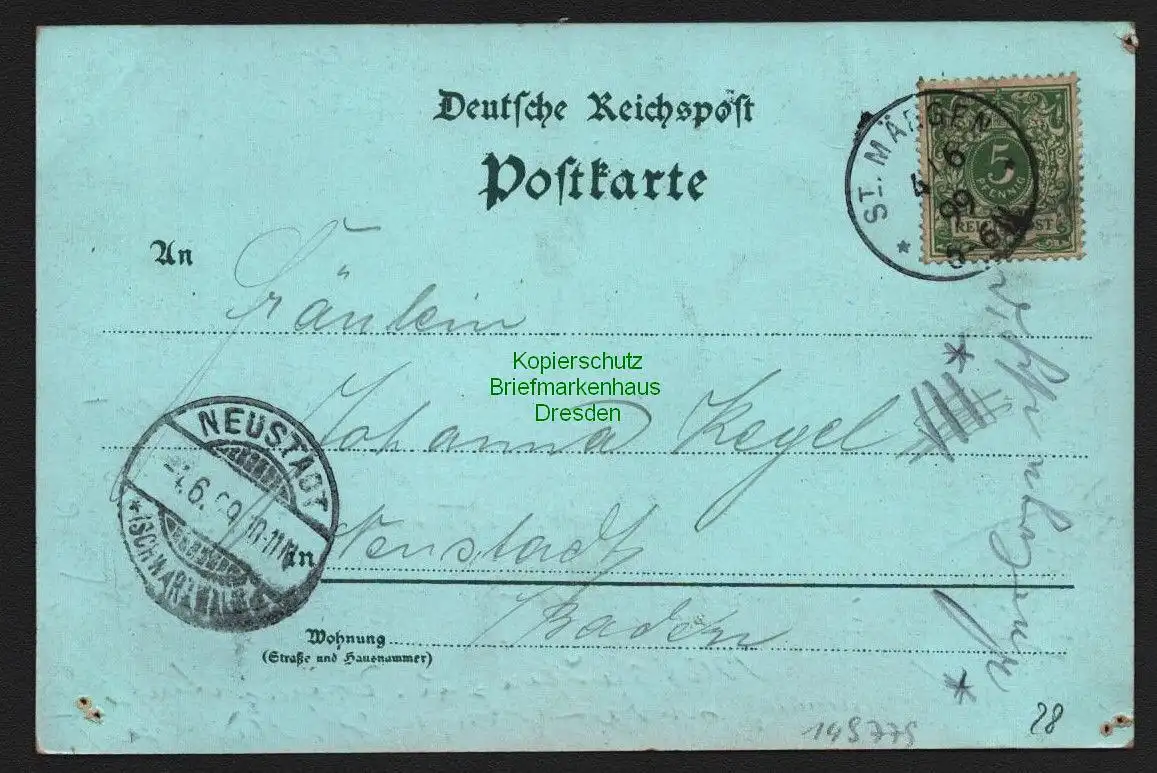 Deutsche Reichspost
Postkarte
ST. MÄRGEN
4/6
99
5
PFENNIG
REICHSPOST
An Fräulein
Kopierschutz
Briefmarkenhaus
Dresden
Johanna Kegel
NEUSTADT
4.6.99 10-11N
(SCHWARZWALD)
in Neustadt
Baden
Wohnung
(Straße und Hausnummer)
149779
28